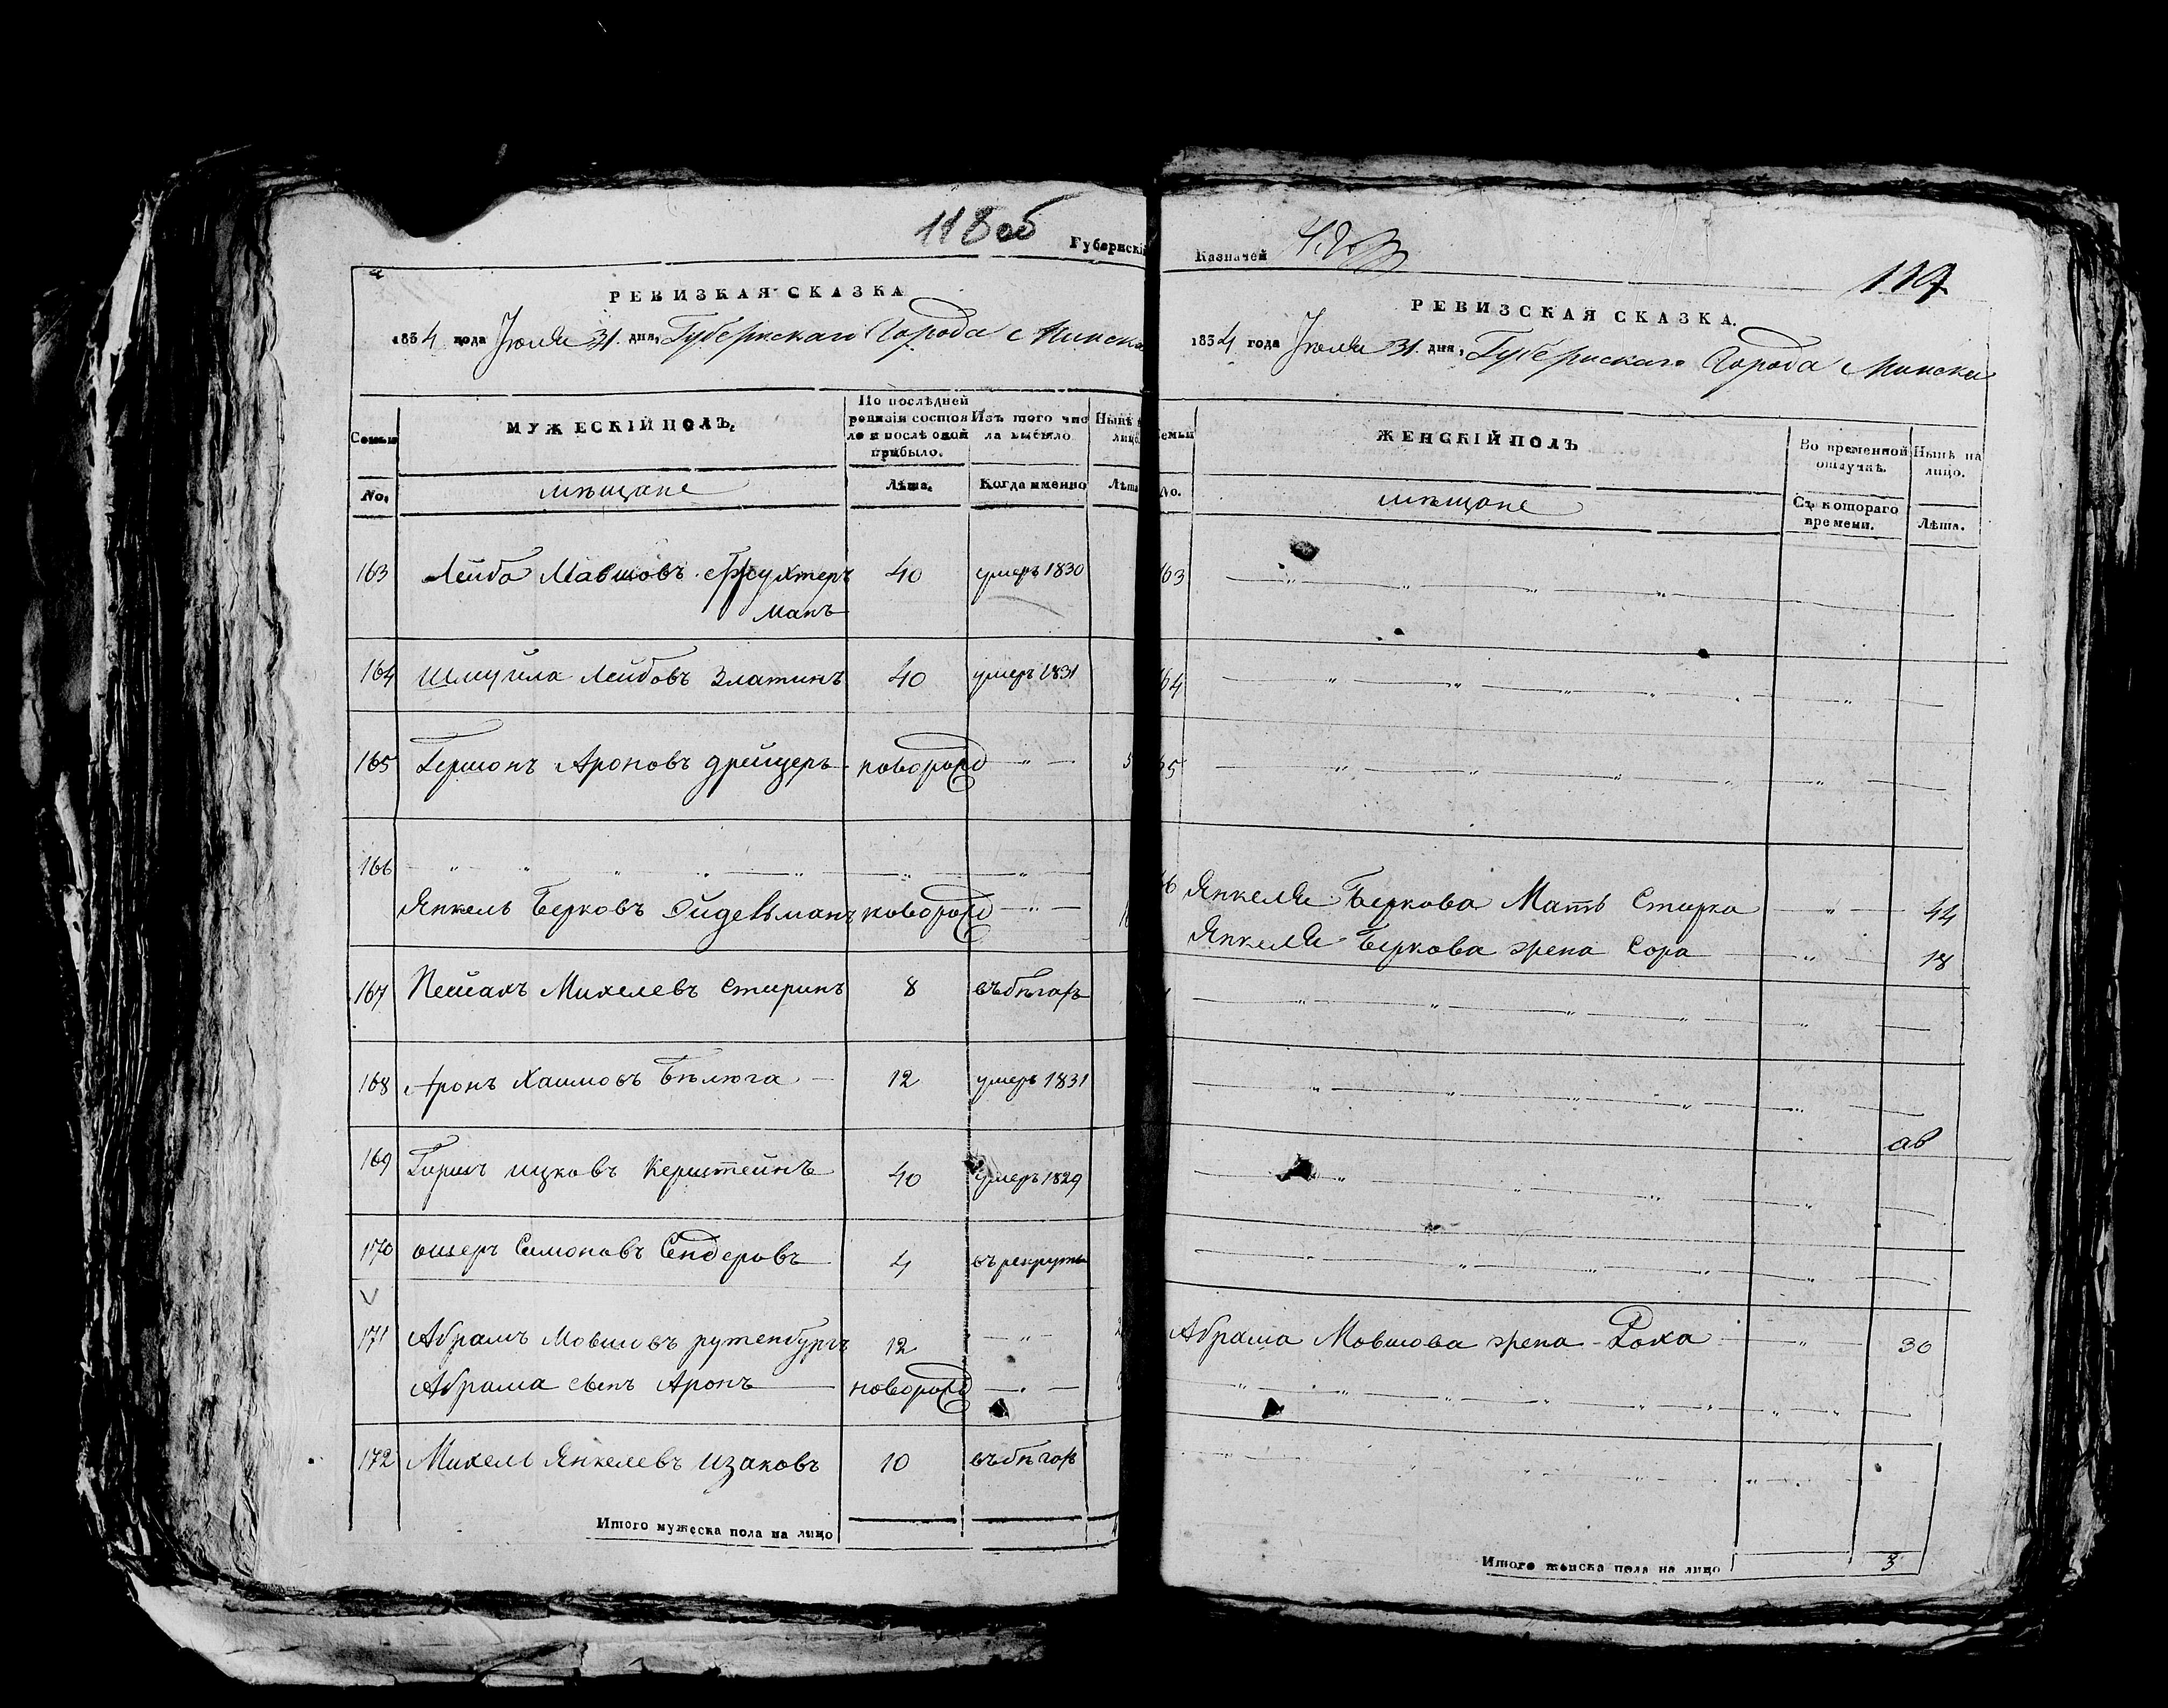 118 об
Губернскі
РЕВИЗКАЯ СКАЗКА
1834 года Іюля 31. дня, Губернскаго Города Минска
Семьи
МУЖЕСКІЙ ПОЛЪ,
По последней
ревизіи состоя
ло и послѣ оной
прибыло.
Изъ того чис
ла выбыло
Нынѣ
лицо
No.
мѣщане
Лѣта.
Когда именно
Лѣта
163 Лейба Мавшовъ Фрухтер 40 умеръ 1830
манъ
164 Шмуила Лейбовъ Златинъ 40 умеръ 1831
165 Гершонъ Ароновъ Дрейцеръ новорожд — " — 5
166 — " — " — " — " — " — " — " —
Янкель Берковъ Эйдельманъ новорожд — " — 18
167 Пейсахъ Михелевъ Стиринъ 8 въ бѣгахъ
168 Аронъ Хаимовъ Бѣлюга 12 умеръ 1831
169 Гиршъ Ицковъ Керштейнъ 40 умеръ 1829
170 Ошеръ Симоновъ Сендеровъ 4 въ рекруты
171 Абрамъ Мовшовъ Рутенбургъ 12 — " —
Абрама сынъ Аронъ новорожд — " —
172 Михель Янкелевъ Изаковъ 10 въ бѣгахъ
Итого мужеска пола на лицо
Казначей
117
РЕВИЗСКАЯ СКАЗКА.
1834 года Іюля 31. дня, Губернскаго Города Минска
емьи
ЖЕНСКІЙ ПОЛЪ
Во временной
отлучкѣ.
Нынѣ на
лицо.
No.
мѣщане
Съ котораго
времени.
Лѣта.
63 — " — " — " — " —
64 — " — " — " — " — " — " —
65 — " — " — " — " — " —
6 Янкеля Беркова Мать Стирка — " — 44
Янкеля Беркова жена Сора — " — 18
— " — " — " — " — " —
— " — " — " — " — " —
— " — " — " — " —
— " — " — " — " — " —
Абрама Мовшова жена Роха — " — 30
— " — " — " — " — " — " — " —
— " — " — " — " — " — " —
Итого женска пола на лицо 3